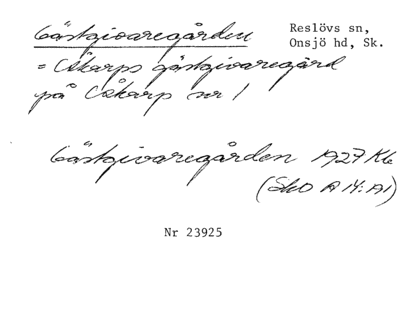 Gästgivaregården
Reslövs sn,
Onsjö hd, Sk.
= Åkarps gästgivaregård
på Åkarp nr 1
Gästgivaregården 1927 Kb
(SkO A M: A1)
Nr 23925